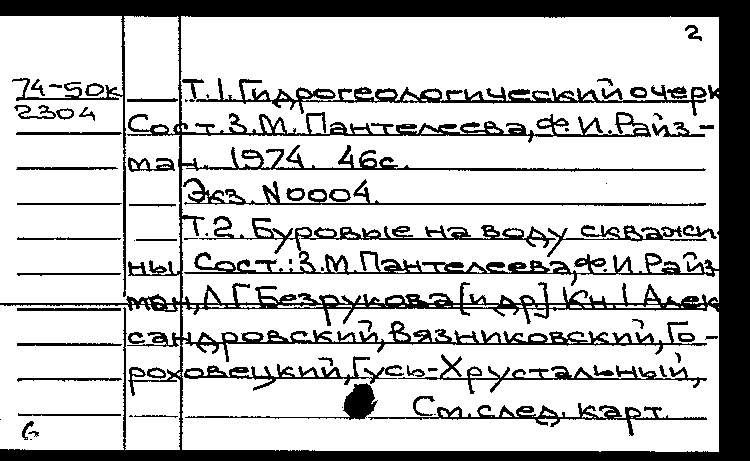 2
74-50к Т.1. Гидрогеологический очерк
2304 Сост. З.М. Пантелеева, Ф.И. Райз-
ман. 1974. 46с.
Экз. N0004.
Т.2. Буровые на воду скважи
ны Сост.: З.М. Пантелеева, Ф.И. Райз
ман, Л.Г Безрукова [и др]. Кн.1 Алек
сандровский, Вязниковский, Го-
роховецкий, Гусь-Хрустальный,
См. след. карт.
6